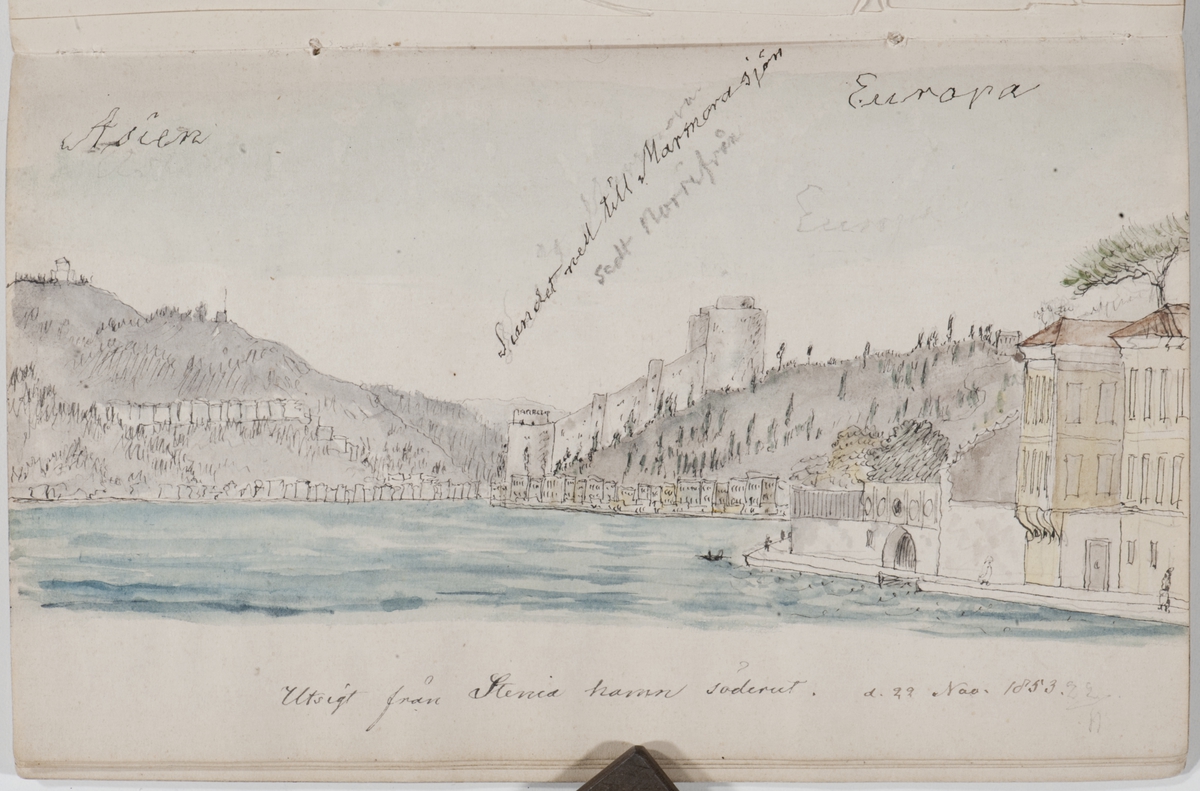 Asien
Europa
Sundet ned till Marmorasjön
Sedt Norrifrån
Europa
Utsigt från Stenia hamn söderut. d. 22 Nov. 1853.
22
11